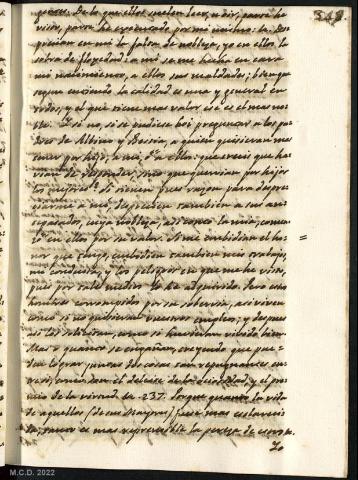 349
guerra. De lo que ellos suelen leer, u oir, parte he
visto, parte he executado por mi mismo:
en mi la falta de nobleza, yo en ellos la
sobra de floxedad: a mi se me hecha en cara
mi nacimiento, a ellos sus maldades; bien que
segun entiendo la calidad es una y general en
todos, y el que tiene mas valor, ese es el mas no-
ble. Y si no, si se pudiese hoi preguntar a los pa-
dres de Albino y Bestia, a quien quisieran mas
tener por hijo, a mi, o a ellos: que creeis que ha-
vian de responder, sino que querrian por hijos
los mejores? Si tienen pues razon para despre-
ciarme a mi, desprecien tambien a sus an-
tepasados, cuya nobleza, asi como la mia, comen-
zó en ellos por su valor. A mi me embidian el ho-
nor que tengo, embidien tambien mis trabajos,
mi conducta, y los peligros en que me he visto,
pues por este medio le he adquirido. Pero estos
hombres corrompidos por su sobervia, asi viven
como si no quisieran vuestros empleos; y despues
asi los solicitan, como si huvieran vivido bien.
Mas o quanto se engañan, creyendo que pue-
den lograr juntas dos cosas tan repugnantes en-
tre si, como son el deleite de la ociosidad, y el pre-
mio de la virtud. 237. Porque quanto la vida
de aquellos (de sus Mayores) fue mas esclareci-
da, tanto es mas reprensible la pereza de estos.
Lo
=
M.C.D. 2022